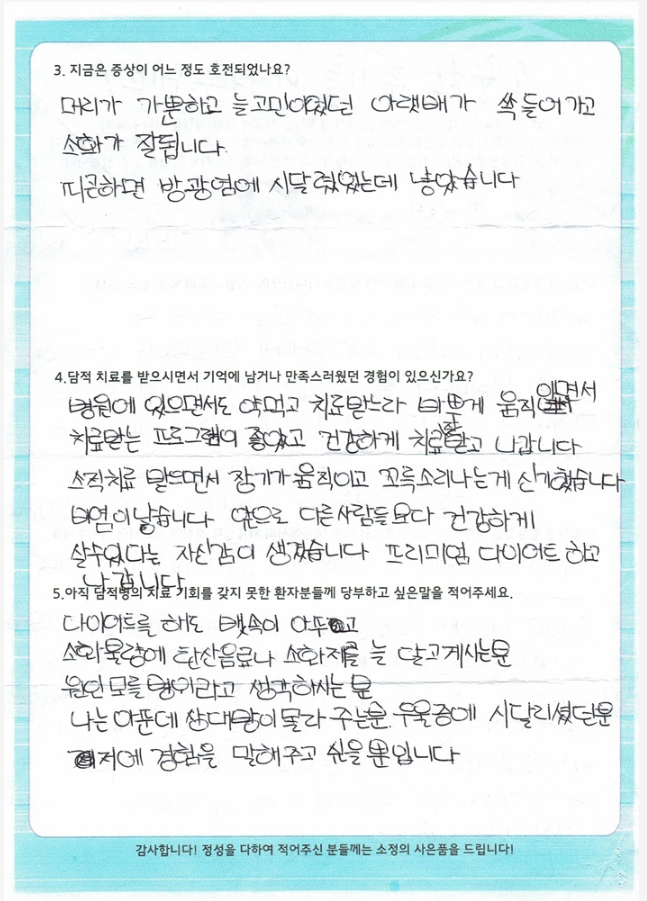 3. 지금은 증상이 어느 정도 호전되었나요?
머리가 가뿐하고 늘고민이였던 아랫배가 싹들어가고
소화가 잘됩니다.
피곤하면 방광염에 시달렸었는데 낳았습니다
4.담적 치료를 받으시면서 기억에 남거나 만족스러웠던 경험이 있으신가요?
병원에 있으면서도 약먹고 치료받느라 바쁘게 움직이면서
치료받는 프로그램이 좋았고 건강하게 치료잘받고 나갑니다
소적치료 받으면서 장기가 움직이고 꼬륵소리나는게 신기했습니다
비염이 낳습니다. 앞으로 다른사람들보다 건강하게
살수있다는 자신감이 생겼습니다 프리미엄 다이어트 하고
나갑니다
5.아직 담적병의 치료 기회를 갖지 못한 환자분들께 당부하고 싶은말을 적어주세요.
다이어트를 해도 뱃속이 아프고
소화불량에 탄산음료나 소화제를 늘 달고계시는분
원인 모를 병이라고 생각하시는 분
나는 아픈데 상대방이 몰라 주는분. 우울증에 시달리셨던분
저에 경험을 말해주고 싶을 뿐입니다
감사합니다! 정성을 다하여 적어주신 분들께는 소정의 사은품을 드립니다!